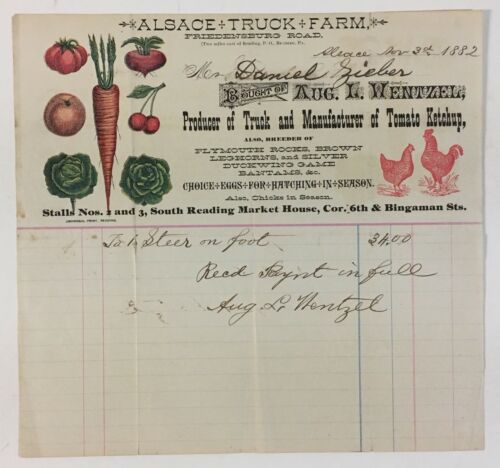 ALSACE TRUCK FARM,
FRIEDENSBURG ROAD,
(Two miles east of Reading, P. O., Reading, Pa.
Alsace Nov 3rd 1882
Mr Daniel Zieber
BOUGHT OF AUG. L. WENTZEL,
Producer of Truck and Manufacturer of Tomato Ketchup,
ALSO, BREEDER OF
PLYMOUTH ROCKS, BROWN
LEGHORNS, and SILVER
DUCKWING GAME
BANTAMS, &c.
CHOICE EGGS FOR HATCHING IN SEASON.
Also, Chicks in Season.
Stalls Nos. 2 and 3, South Reading Market House, Cor. 6th & Bingaman Sts.
To 1 Steer on foot 34.00
Recd Paynt in full
Aug L. Wentzel